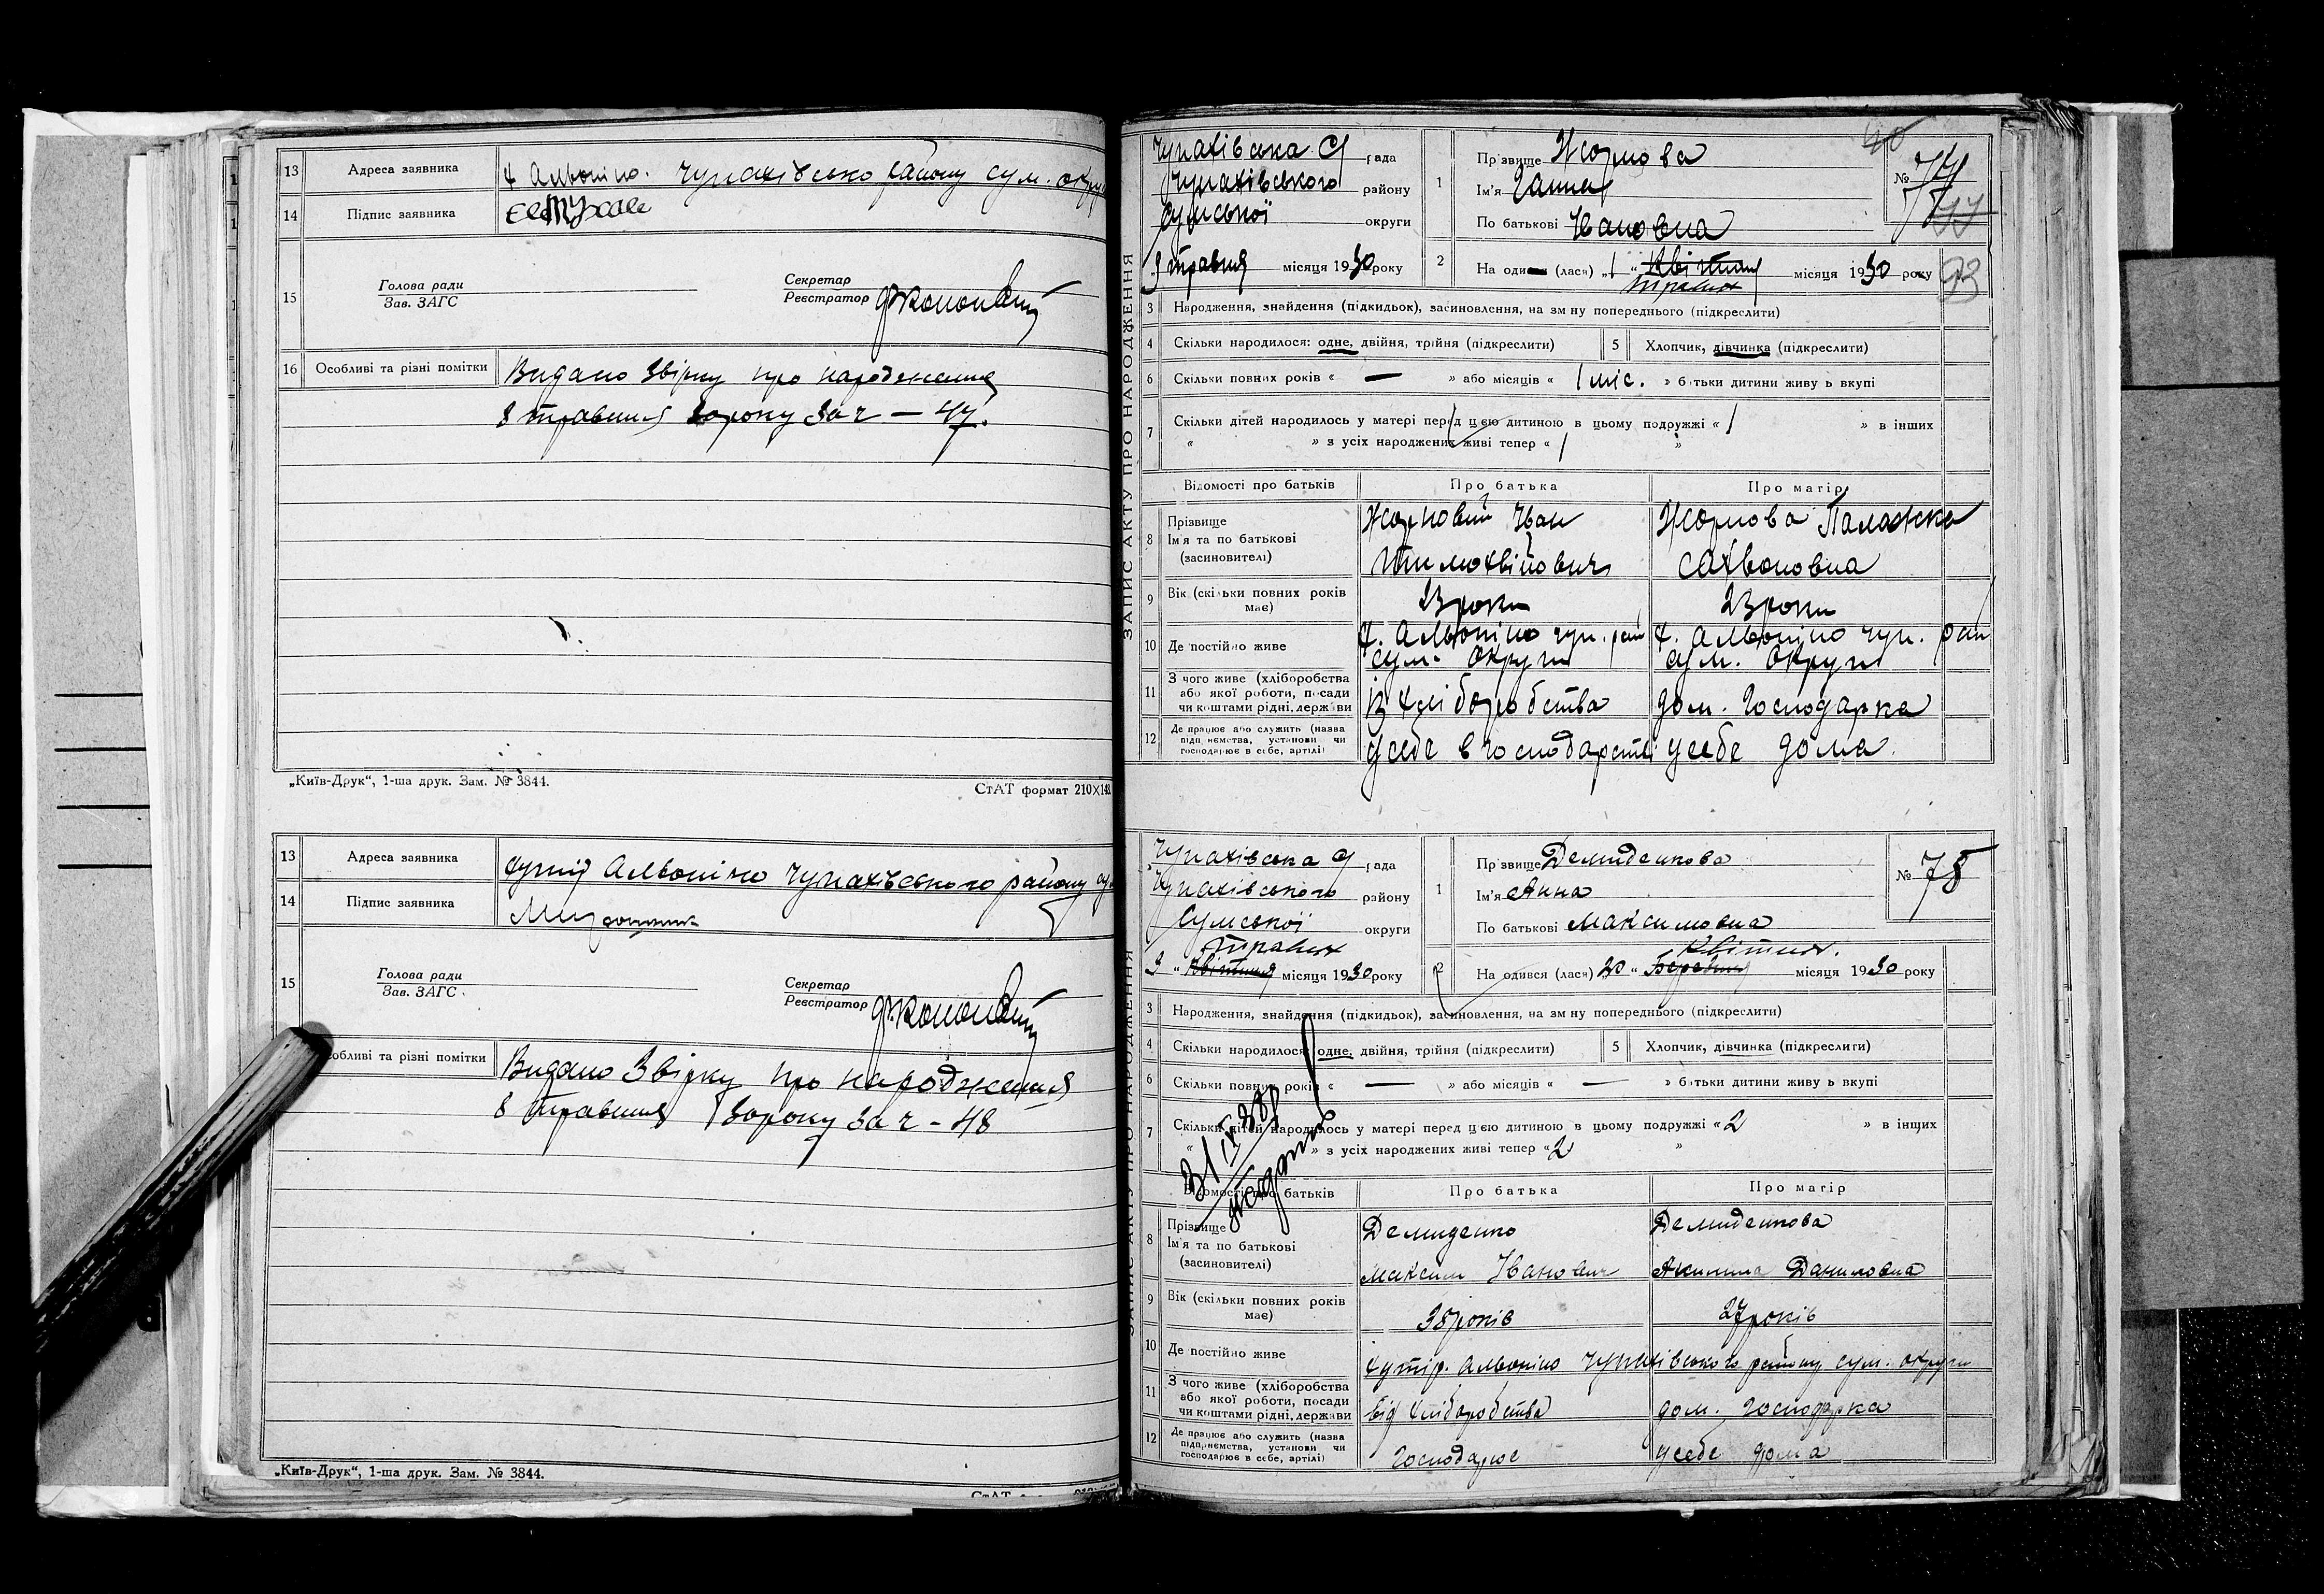 13 Адреса заявника х Альвоніно. Чупахівсько району сум. окру
14 Підпис заявника
15 Голова ради
Зав. ЗАГС
Секретар
Реєстратор
16 Особливі та різні помітки Видано Звірку про народження
8 травня 30 року за ч – 47.
„Київ-Друк“, 1-ша друк. Зам. № 3844.
СтАТ формат 210X148
13 Адреса заявника хутір Альвоніно Чупахівського району
14 Підпис заявника
15 Голова ради
Зав. ЗАГС
Секретар
Реєстратор
собливі та різні помітки Видано Звірку про народження
8 травня 30 року за ч - 48
„Київ-Друк“, 1-ша друк. Зам. № 3844.
ЗАПИС АКТУ ПРО НАРОДЖЕННЯ
Чупахівська С рада
Чупахівського району
Сумської округи
9 травня місяця 1930 року
1 Прізвище Жорнова
Ім'я Ганна
По батькові Івановна
№ 74
93
2 На оди (лася) „1“ Квітня травня місяця 1930 року
3 Народження, знайдення (підкидьок), засиновлення, на зміну попереднього (підкреслити)
4 Скільки народилося: одне, двійня, трійня (підкреслити)
5 Хлопчик, дівчинка (підкреслити)
6 Скільки повних років « — » або місяців « 1 міс. » батьки дитини живуть вкупі
7 Скільки дітей народилось у матері перед цією дитиною в цьому подружжі « 1 » в інших
« » з усіх народжених живі тепер « 1 »
Відомості про батьків Про батька Про матір
8 Прізвище
Ім'я та по батькові
(засиновителі)
Жорновий Іван
Тимохвійович
Жорнова Палажка
Сахвоновна
9 Вік (скільки повних років має) 23 роки 23 роки
10 Де постійно живе х. Альвоніно чуп. рай сум. округи х. Альвоніно чуп. рай сум. округи
11 З чого живе (хліборобства
або якої роботи, посади
чи коштами рідні, держави
із хліборобства дом. Господарка
12 Де працює або служить (назва
підприємства, установи чи
господарює в себе, артілі)
усебе в господарстві усебе дома.
ЗАПИС АКТУ ПРО НАРОДЖЕННЯ
Чупахівська С рада
Чупахівського району
Сумської округи
9 “ Квітня травня місяця 1930 року
1 Прізвище Демиденкова
Ім'я Анна
По батькові Максимовна
№ 75
2 На одився (лася) 20 “ Березня Квітня. місяця 1930 року
3 Народження, знайдення (підкидьок), засиновлення, на зміну попереднього (підкреслити)
4 Скільки народилося: одне, двійня, трійня (підкреслити)
5 Хлопчик, дівчинка (підкреслити)
6 Скільки повних років « — » або місяців « — » батьки дитини живуть вкупі
7 Скільки дітей народилось у матері перед цією дитиною в цьому подружжі « 2 » в інших
« » з усіх народжених живі тепер « 2 »
Відомості про батьків Про батька Про матір
8 Прізвище
Ім'я та по батькові
(засиновителі)
Демиденко
Максим Іванович
Демиденкова
Акилина Даниловна
9 Вік (скільки повних років має) 38 років 27 років
10 Де постійно живе хутір. Альвоніно Чупахівського району сум. округи
11 З чого живе (хліборобства
або якої роботи, посади
чи коштами рідні, держави
від хліборобства дом. Господарка
12 Де працює або служить (назва
підприємства, установи чи
господарює в себе, артілі)
Господарює усебе дома